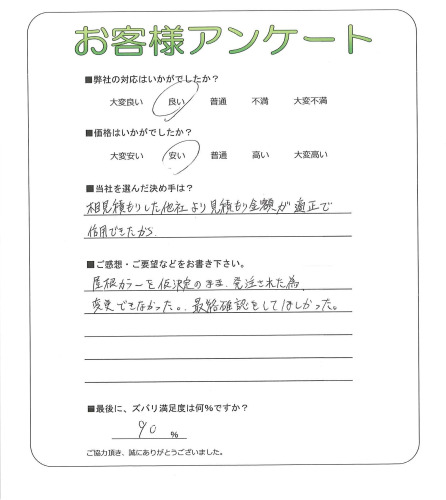 お客様アンケート
■弊社の対応はいかがでしたか？
大変良い 良い 普通 不満 大変不満
■価格はいかがでしたか？
大変安い 安い 普通 高い 大変高い
■当社を選んだ決め手は？
相見積もりした他社より見積もり金額が適正で
信用できたから
■ご感想・ご要望などをお書き下さい。
屋根カラーを仮決定のまま、発注された為、
変更できなかった。最終確認をしてほしかった。
■最後に、ズバリ満足度は何％ですか？
90 ％
ご協力頂き、誠にありがとうございました。